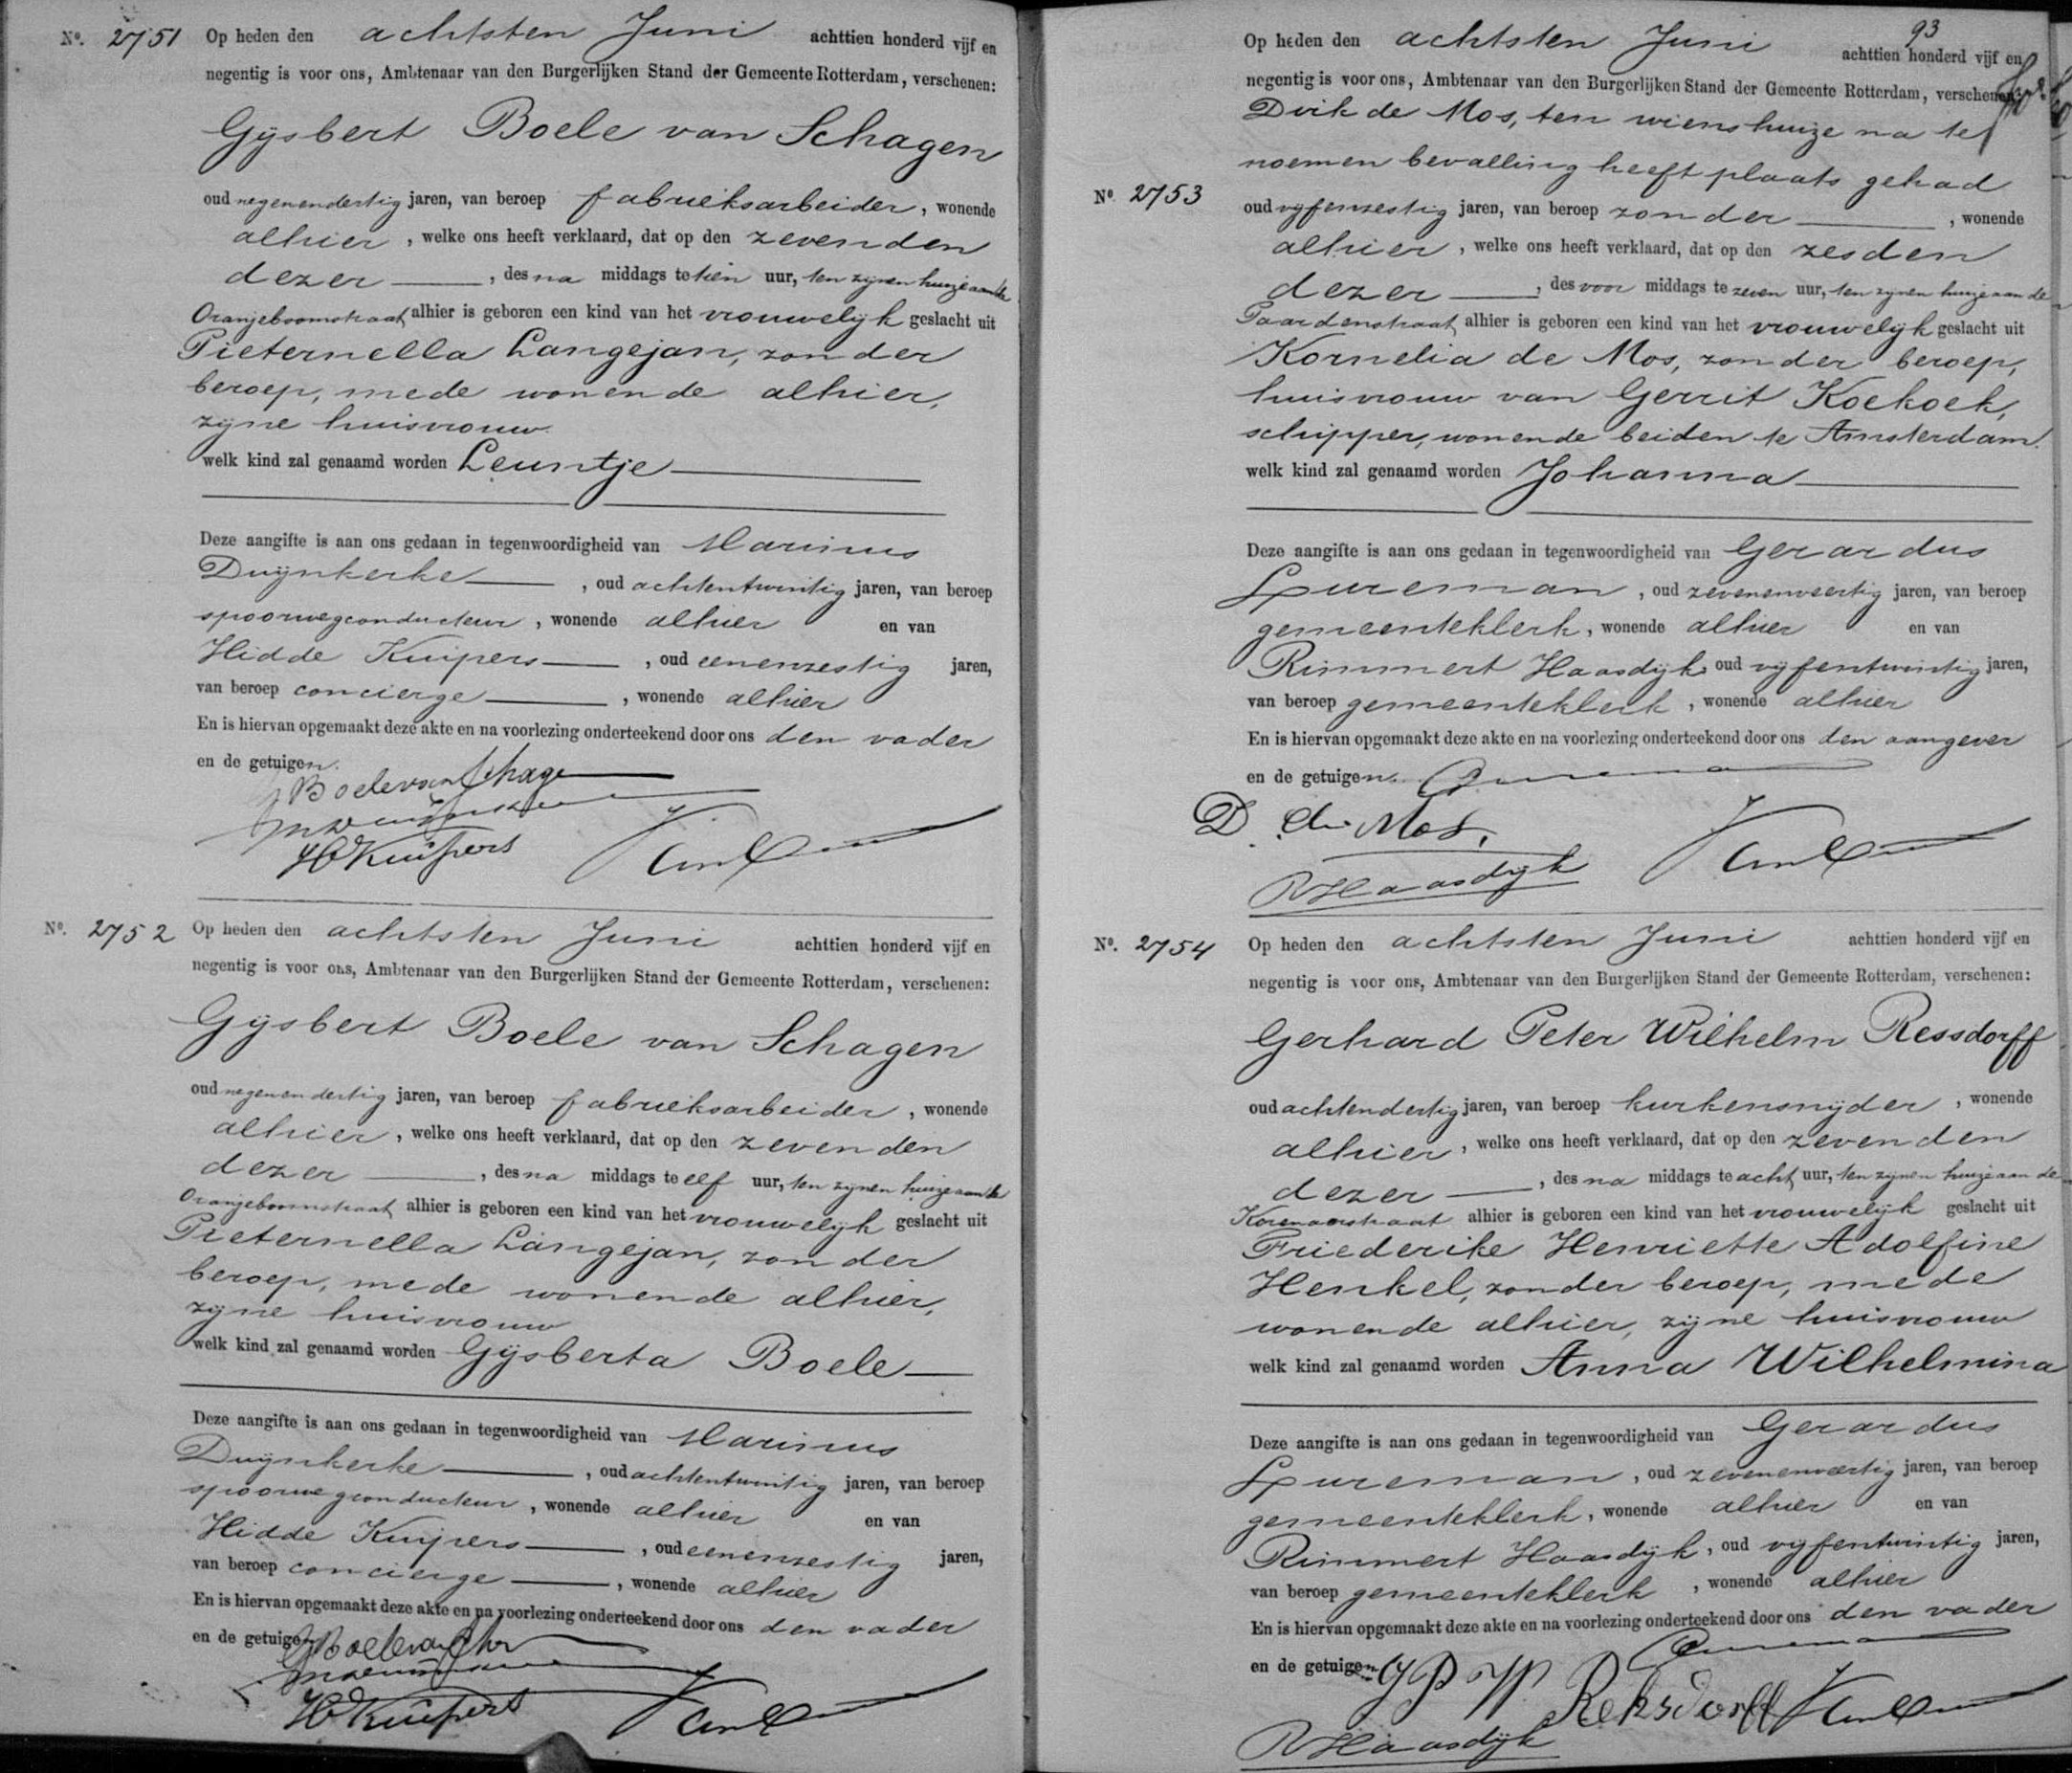 Nº. 2751 Op heden den achtsten Juni achttien honderd vijf en
negentig is voor ons, Ambtenaar van den Burgerlijken Stand der Gemeente Rotterdam, verschenen:
Gijsbert Boele van Schagen
oud negenendertig jaren, van beroep fabrieksarbeider, wonende
alhier, welke ons heeft verklaard, dat op den zevenden
dezer, des na middags te tien uur, ten zijnen huize aan de
Oranjeboomstraat alhier is geboren een kind van het vrouwelijk geslacht uit
Pieternella Langejan, zonder
beroep, mede wonende alhier,
zijne huisvrouw
welk kind zal genaamd worden Leuntje
Deze aangifte is aan ons gedaan in tegenwoordigheid van Marinus
Duijnkerke, oud achtentwintig jaren, van beroep
spoorwegconducteur, wonende alhier en van
Hidde Kuipers, oud eenenzestig jaren,
van beroep concierge, wonende alhier
En is hiervan opgemaakt deze akte en na voorlezing onderteekend door ons den vader
en de getuigen.
G Boele van Schagen
H Kuipers
Nº. 2752 Op heden den achtsten Juni achttien honderd vijf en
negentig is voor ons, Ambtenaar van den Burgerlijken Stand der Gemeente Rotterdam, verschenen:
Gijsbert Boele van Schagen
oud negenendertig jaren, van beroep fabrieksarbeider, wonende
alhier, welke ons heeft verklaard, dat op den zevenden
dezer, des na middags te elf uur, ten zijnen huize aan de
Oranjeboomstraat alhier is geboren een kind van het vrouwelijk geslacht uit
Pieternella Langejan, zonder
beroep, mede wonende alhier,
zijne huisvrouw
welk kind zal genaamd worden Gijsberta Boele
Deze aangifte is aan ons gedaan in tegenwoordigheid van Marinus
Duijnkerke, oud achtentwintig jaren, van beroep
spoorwegconducteur, wonende alhier en van
Hidde Kuipers, oud eenenzestig jaren,
van beroep concierge, wonende alhier
En is hiervan opgemaakt deze akte en na voorlezing onderteekend door ons den vader
en de getuigen
H Kuipers
93
Op heden den achtsten Juni achttien honderd vijf en
negentig is voor ons, Ambtenaar van den Burgerlijken Stand der Gemeente Rotterdam, verschenen:
Dirk de Mos, ten wiens huize na te
noemen bevalling heeft plaats gehad
Nº 2753 oud vijfenzestig jaren, van beroep zonder, wonende
alhier, welke ons heeft verklaard, dat op den zesden
dezer, des voor middags te zeven uur, ten zijnen huize aan de
Paardenstraat alhier is geboren een kind van het vrouwelijk geslacht uit
Kornelia de Mos, zonder beroep,
huisvrouw van Gerrit Koekoek,
schipper, wonende beiden te Amsterdam.
welk kind zal genaamd worden Johanna
Deze aangifte is aan ons gedaan in tegenwoordigheid van Gerardus
Lureman, oud zevenenveertig jaren, van beroep
gemeenteklerk, wonende alhier en van
Rimmert Haasdijk oud vijfentwintig jaren,
van beroep gemeenteklerk, wonende alhier
En is hiervan opgemaakt deze akte en na voorlezing onderteekend door ons den aangever
en de getuigen.
D. de Mos.
R Haasdijk
Nº. 2754 Op heden den achtsten Juni achttien honderd vijf en
negentig is voor ons, Ambtenaar van den Burgerlijken Stand der Gemeente Rotterdam, verschenen:
Gerhard Peter Wilhelm Ressdorff
oud achtendertig jaren, van beroep kurkensnijder, wonende
alhier, welke ons heeft verklaard, dat op den zevenden
dezer, des na middags te acht uur, ten zijnen huize aan de
Korenaarstraat alhier is geboren een kind van het vrouwelijk geslacht uit
Friederike Henriette Adolfine
Henkel, zonder beroep, mede
wonende alhier, zijne huisvrouw
welk kind zal genaamd worden Anna Wilhelmina
Deze aangifte is aan ons gedaan in tegenwoordigheid van Gerardus
Lureman, oud zevenenveertig jaren, van beroep
gemeenteklerk, wonende alhier en van
Rimmert Haasdijk, oud vijfentwintig jaren,
van beroep gemeenteklerk, wonende alhier
En is hiervan opgemaakt deze akte en na voorlezing onderteekend door ons den vader
en de getuigen
G P W Reksdorff
R Haasdijk